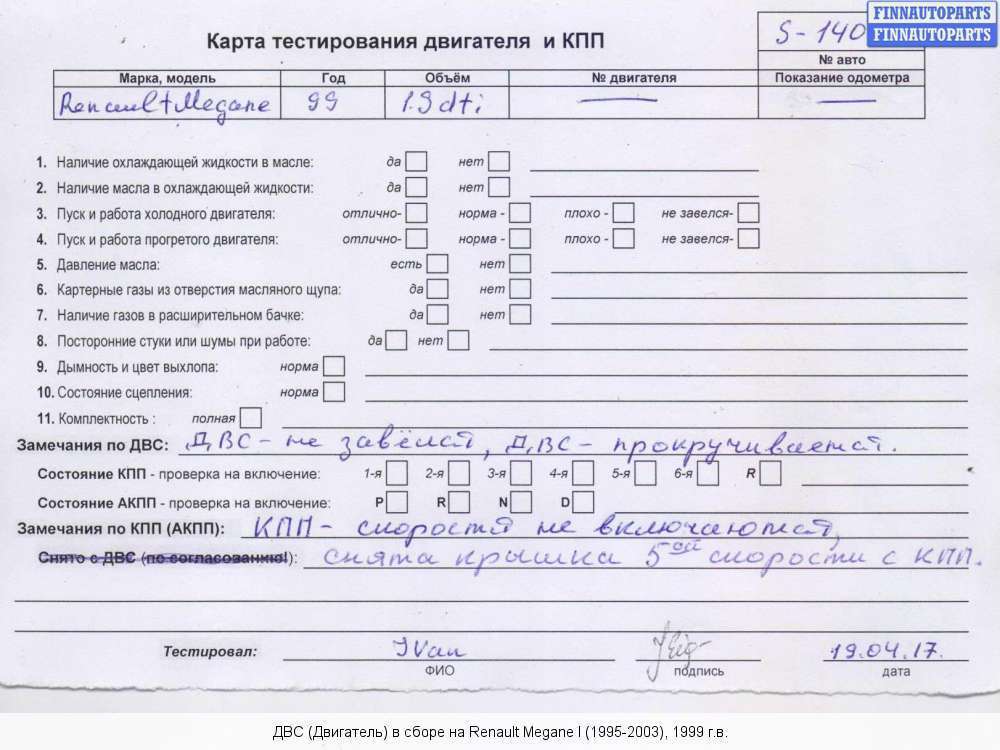 FINNAUTOPARTS
FINNAUTOPARTS
S-140
Карта тестирования двигателя и КПП
№ авто
Марка, модель Год Объём № двигателя Показание одометра
Renault Megane 99 1.9dti — —
1. Наличие охлаждающей жидкости в масле: да нет
2. Наличие масла в охлаждающей жидкости: да нет
3. Пуск и работа холодного двигателя: отлично- норма - плохо - не завелся-
4. Пуск и работа прогретого двигателя: отлично- норма - плохо - не завелся-
5. Давление масла: есть нет
6. Картерные газы из отверстия масляного щупа: да нет
7. Наличие газов в расширительном бачке: да нет
8. Посторонние стуки или шумы при работе: да нет
9. Дымность и цвет выхлопа: норма
10. Состояние сцепления: норма
11. Комплектность : полная
Замечания по ДВС: ДВС - не завёлся, ДВС - прокручивается.
Состояние КПП - проверка на включение: 1-я 2-я 3-я 4-я 5-я 6-я R
Состояние АКПП - проверка на включение: P R N D
Замечания по КПП (АКПП): КПП - скоростя не включаются,
Снято с ДВС (по согласованию!): снята крышка 5ой скорости с КПП.
Тестировал: IVan 19.04.17.
ФИО подпись дата
ДВС (Двигатель) в сборе на Renault Megane I (1995-2003), 1999 г.в.